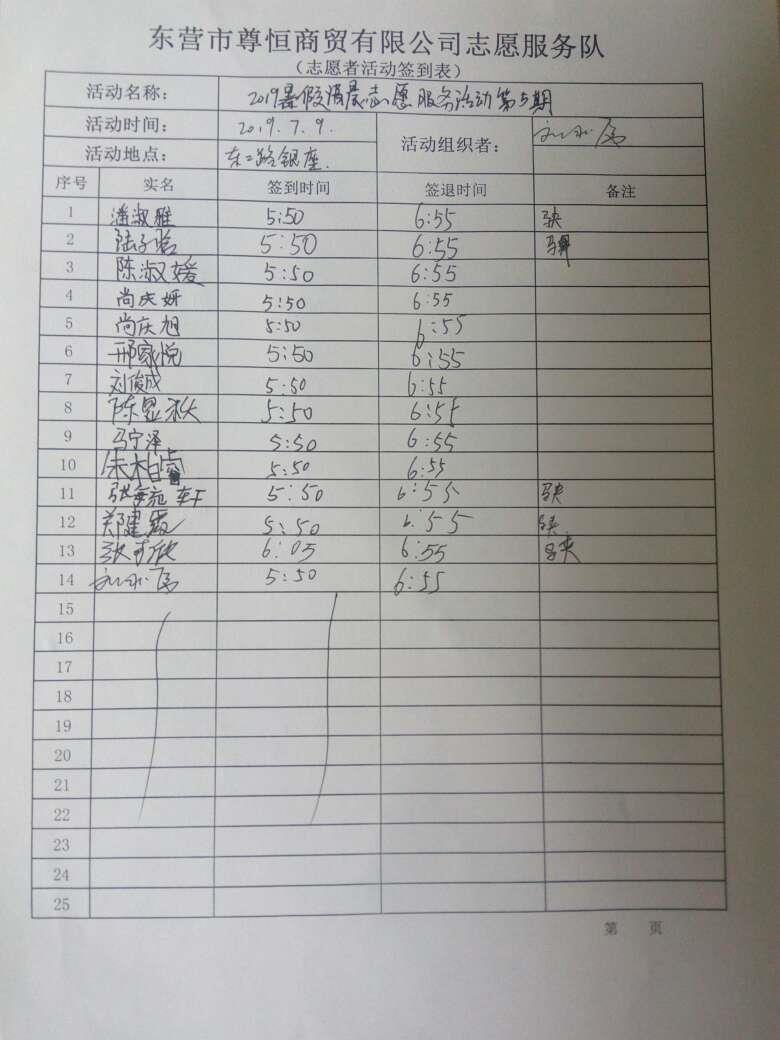 东营市尊恒商贸有限公司志愿服务队
（志愿者活动签到表）
活动名称： 2019暑假清晨志愿服务活动第5期
活动时间： 2019.7.9. 活动组织者：
活动地点： 东二路银座.
序号 实名 签到时间 签退时间 备注
1 潘淑雅 5:50 6:55
2 陆子晗 5:50 6:55
3 陈淑媛 5:50 6:55
4 尚庆妍 5:50 6:55
5 尚庆旭 5:50 6:55
6 邢家悦 5:50 6:55
7 刘俊成 5:50 6:55
8 陈昱秋 5:50 6:55
9 马宁泽 5:50 6:55
10 5:50 6:55
11 5:50 6:55
12 郑建霞 5:50 6:55
13 6:05 6:55
14 5:50 6:55
15
16
17
18
19
20
21
22
23
24
25
第 页